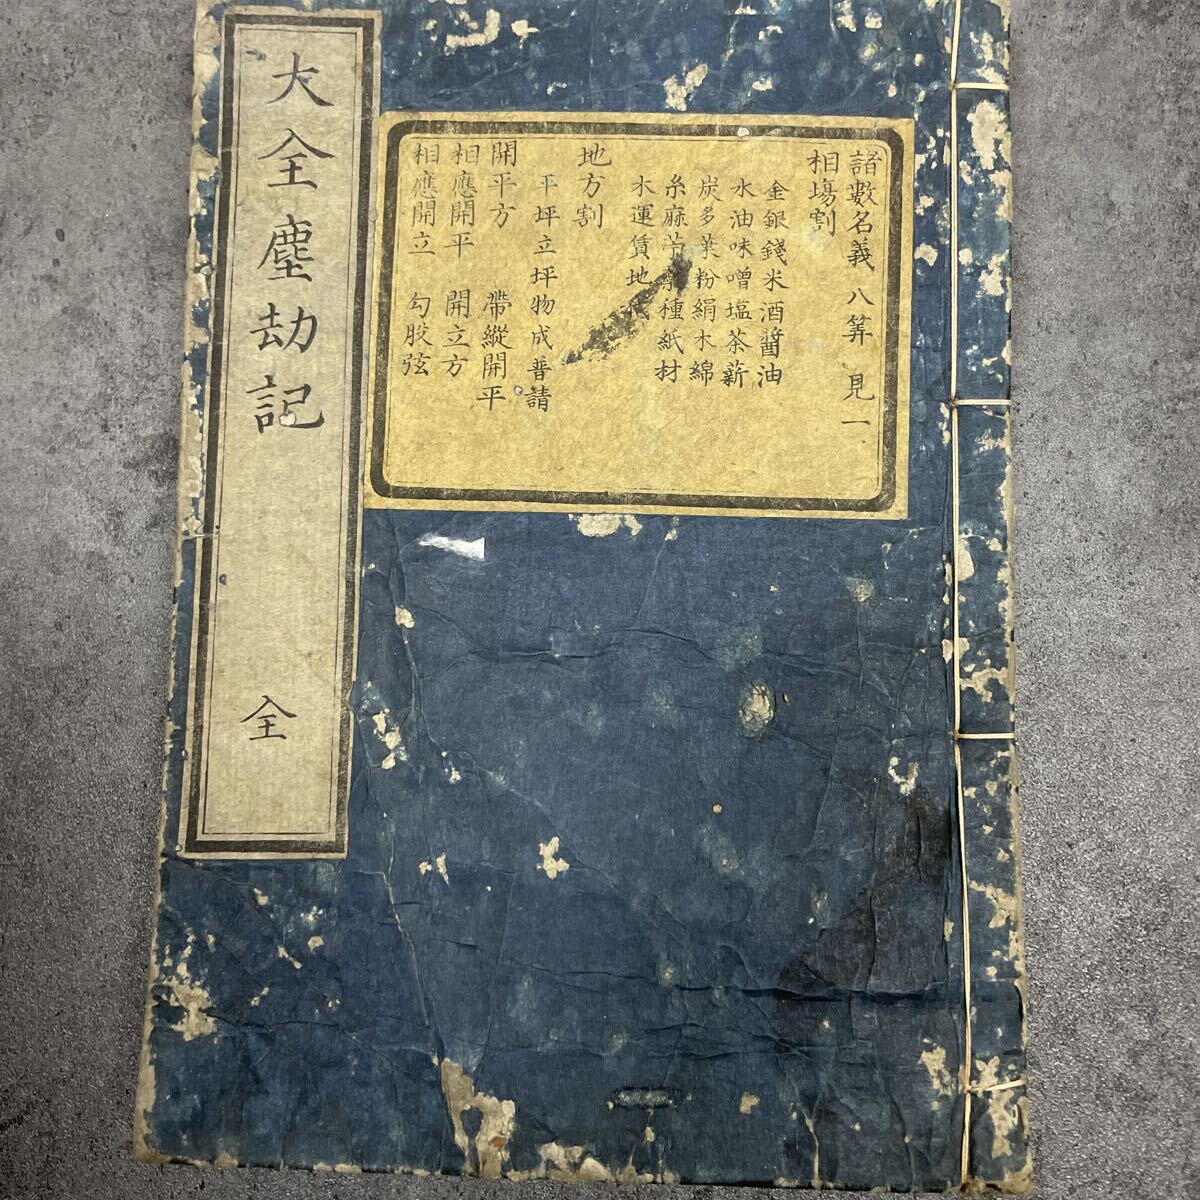 大全塵劫記 全
諸數名義 八筭 見一
相場割
金銀錢米酒醤油
水油味噌塩茶薪
炭多葉粉絹木綿
糸麻苧種紙材
木運賃地代
地方割
平坪立坪物成普請
開平方 帶縱開平
相應開平 開立方
相應開立 勾股弦